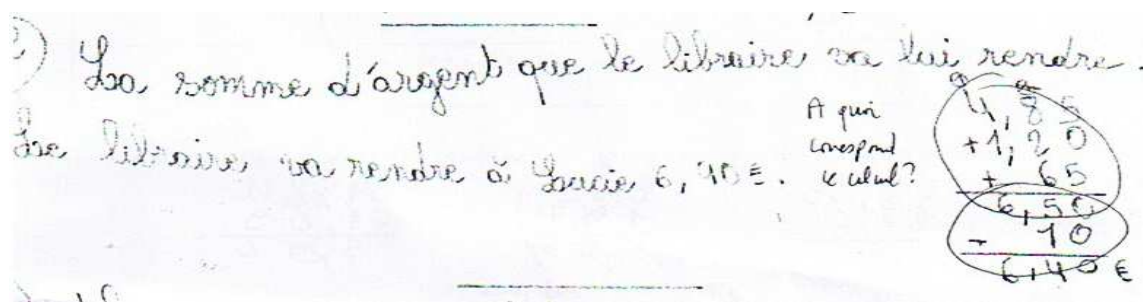 ) La somme d'argent que le libraire va lui rendre.
Le libraire va rendre à Lucie 6,40 €.
A quoi
correspond
ce calcul?
4,85
+1,20
+ 65
6,50
- 10
6,40 €